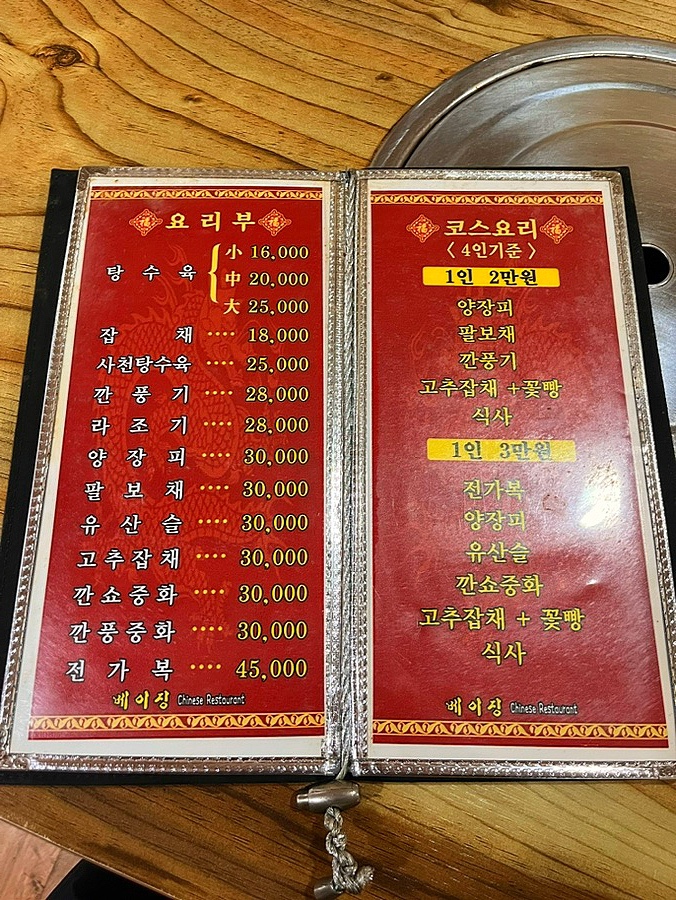 福 요리부 福
탕수육
小 16,000
中 20,000
大 25,000
잡채 ···· 18,000
사천탕수육 ···· 25,000
깐풍기 ···· 28,000
라조기 ···· 28,000
양장피 ···· 30,000
팔보채 ···· 30,000
유산슬 ···· 30,000
고추잡채 ···· 30,000
깐쇼중화 ···· 30,000
깐풍중화 ···· 30,000
전가복 ···· 45,000
베이징 Chinese Restaurant
福 코스요리 福
< 4인기준 >
1인 2만원
양장피
팔보채
깐풍기
고추잡채 +꽃빵
식사
1인 3만원
전가복
양장피
유산슬
깐쇼중화
고추잡채 + 꽃빵
식사
베이징 Chinese Restaurant